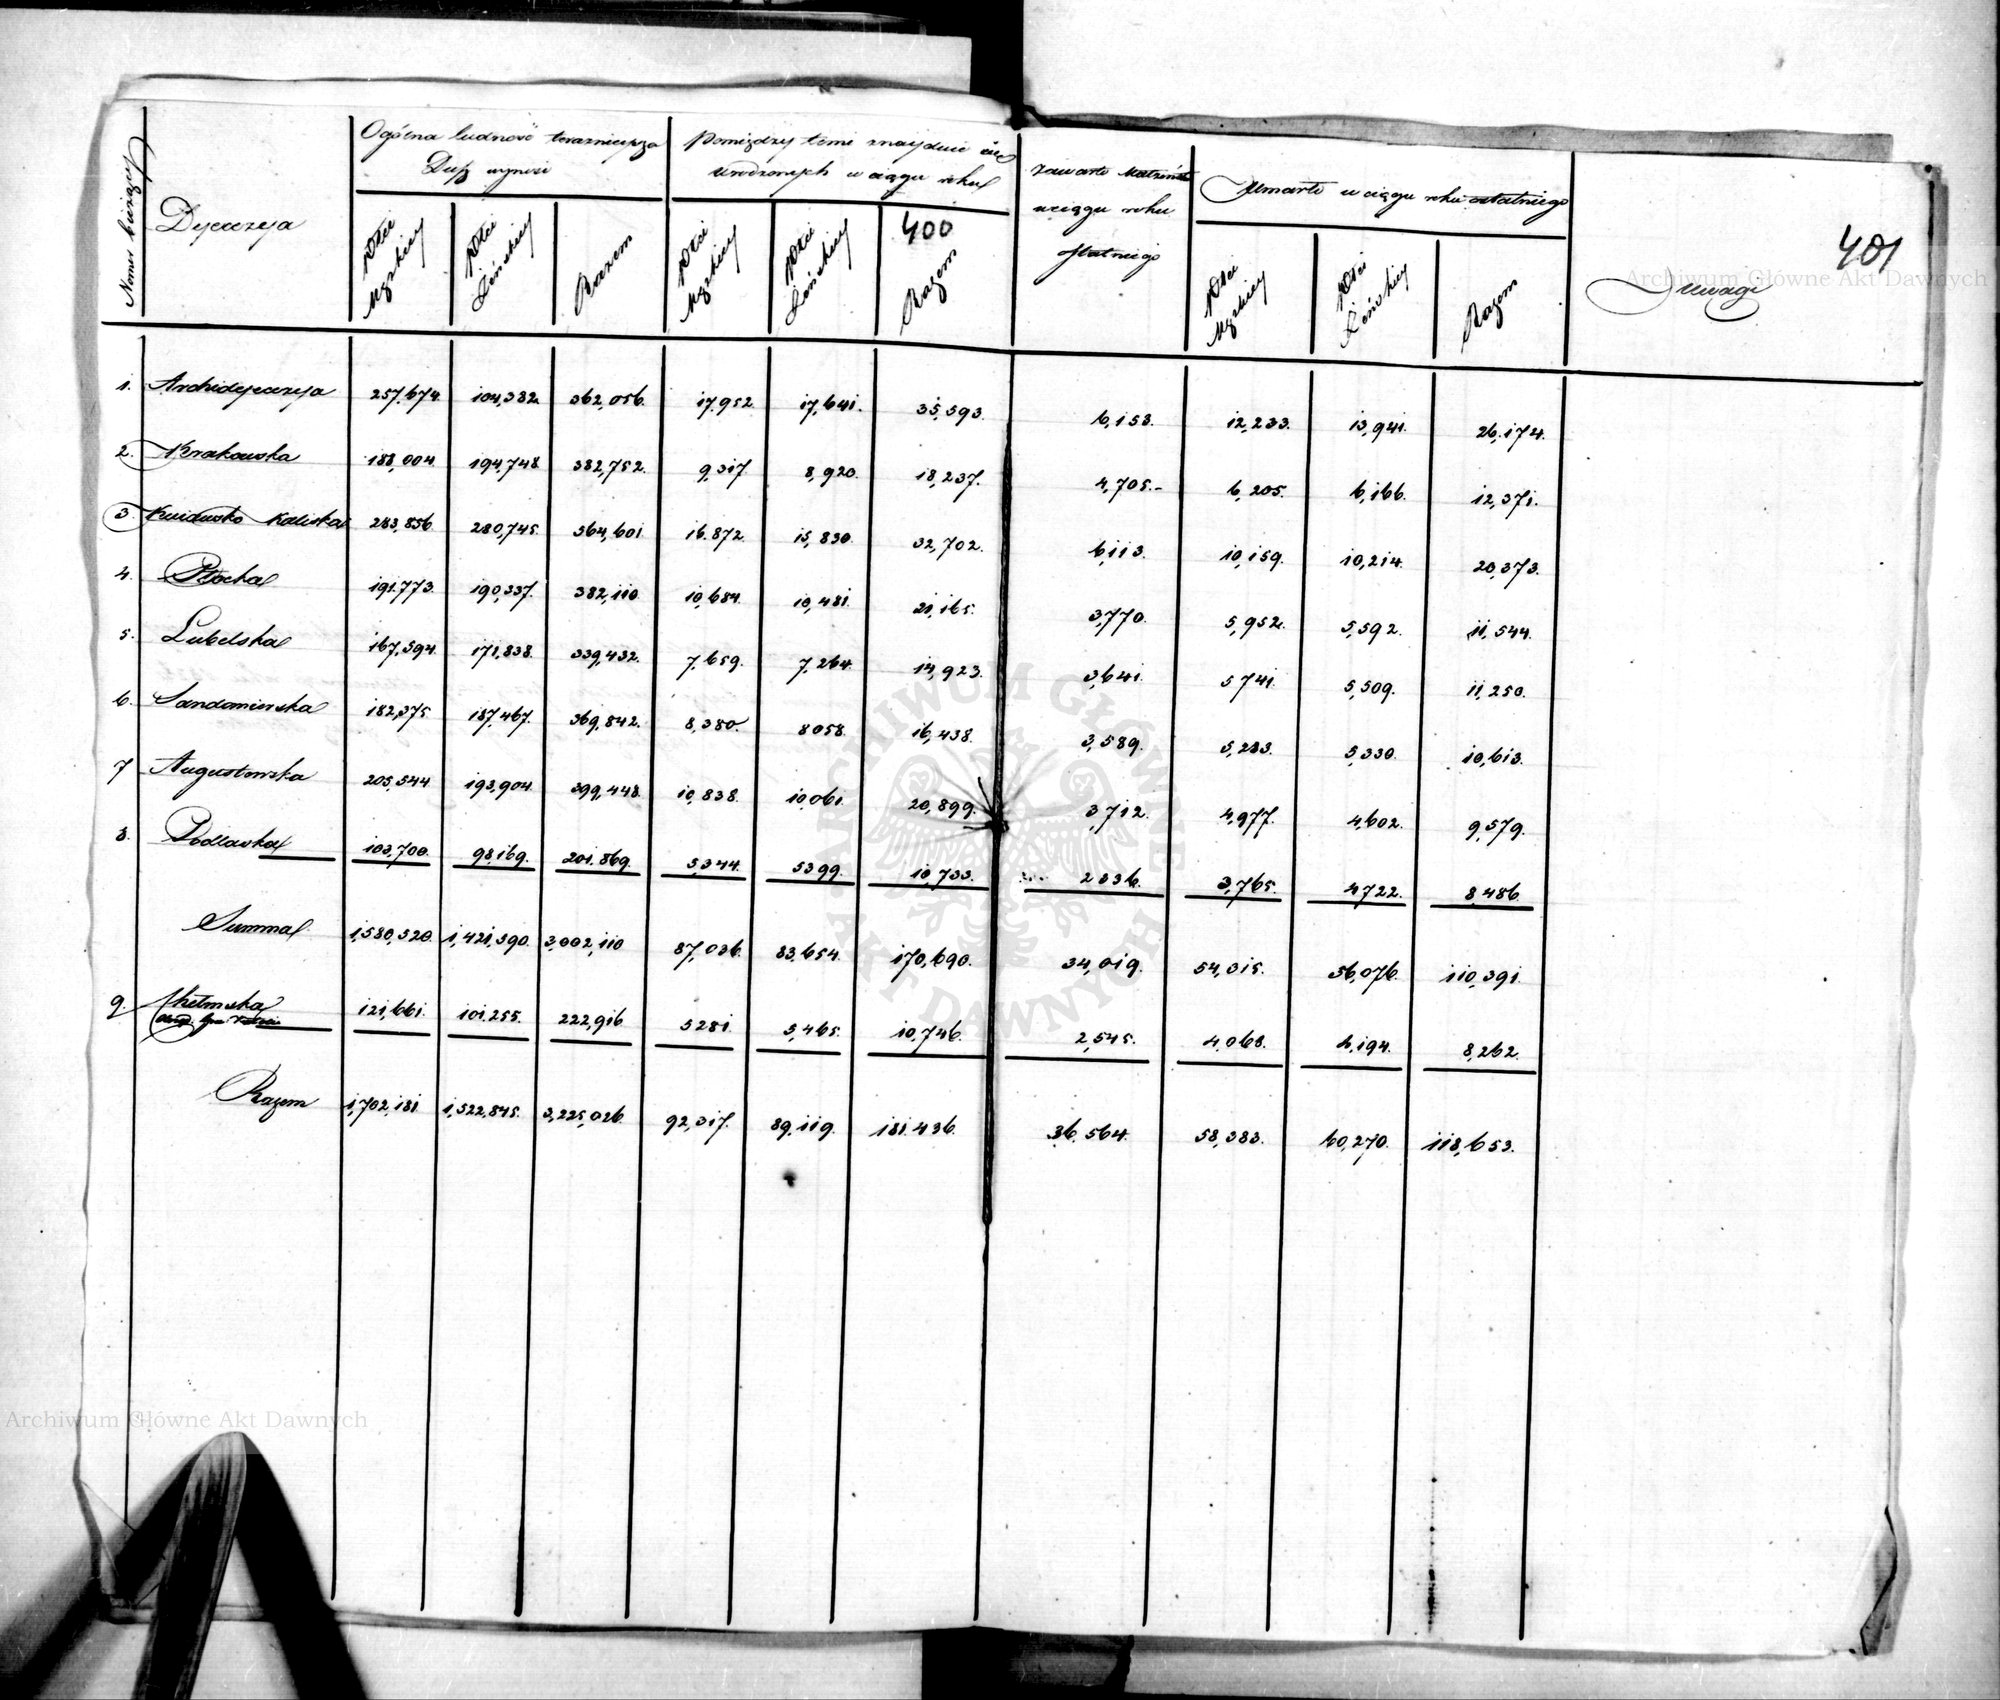 400
401
Numer bieżący
Dyecezya
Ogólna ludność teraznieysza
Dusz wynosi
Płci Męzkiey
Płci Żeńskiey
Razem
Pomiędzy temi znayduie się
urodzonych w ciągu roku
Płci Męzkiey
Płci Żeńskiey
Razem
Zawarto Małżeństw
w ciągu roku
statniego
Umarło w ciągu roku ostatniego
Płci Męzkiey
Płci Żeńskiey
Razem
Uwagi
1. Archidyecezya 257,674. 104,382. 362,056. 17,952. 17,641. 35,593. 6,153. 12,233. 13,941. 26,174.
2. Krakowska 188,004. 194,748. 382,752. 9,317. 8,920. 18,237. 4,705.- 6,205. 6,166. 12,371.
3. Kuiawsko Kaliska 283,856. 280,745. 564,601. 16.872. 15,830. 32,702. 6,113. 10,159. 10,214. 20,373.
4. Płocka 191.773. 190,337. 382,110. 10,684. 10,481. 21,165. 3,770. 5,952. 5,592. 11,544.
5. Lubelska 167,594. 171,838. 339,432. 7,659. 7,264. 14,923. 3,641. 5741. 5,509. 11,250.
6. Sandomirska 182,375. 187,467. 369,842. 8,380. 8058. 16,438. 3,589. 5,283. 5,330. 10,613.
7 Augustowska 205,544 193,904. 399,448. 10,838. 10,061. 20,899. 3,712. 4,977. 4,602. 9,579.
8. Podlaska 103,700. 98,169. 201.869. 5,344. 5399. 10,733. 2336. 3,765. 4722. 8,486.
Summa 1,580,520. 1,421,590. 3,002,110 87,036. 83,654. 170,690. 34,019. 54,315. 56,076. 110,391.
9. Chełmska 121,661. 101.255. 222,916 5281. 5,465. 10,746. 2,545. 4,068. 4,194. 8,262.
Razem 1,702,181. 1,522,845. 3,225,026. 92,317. 89,119. 181.436. 36,564. 58,383. 60,270. 118,653.
Archiwum Główne Akt Dawnych
Archiwum Główne Akt Dawnych
ARCHIWUM GŁÓWNE AKT DAWNYCH